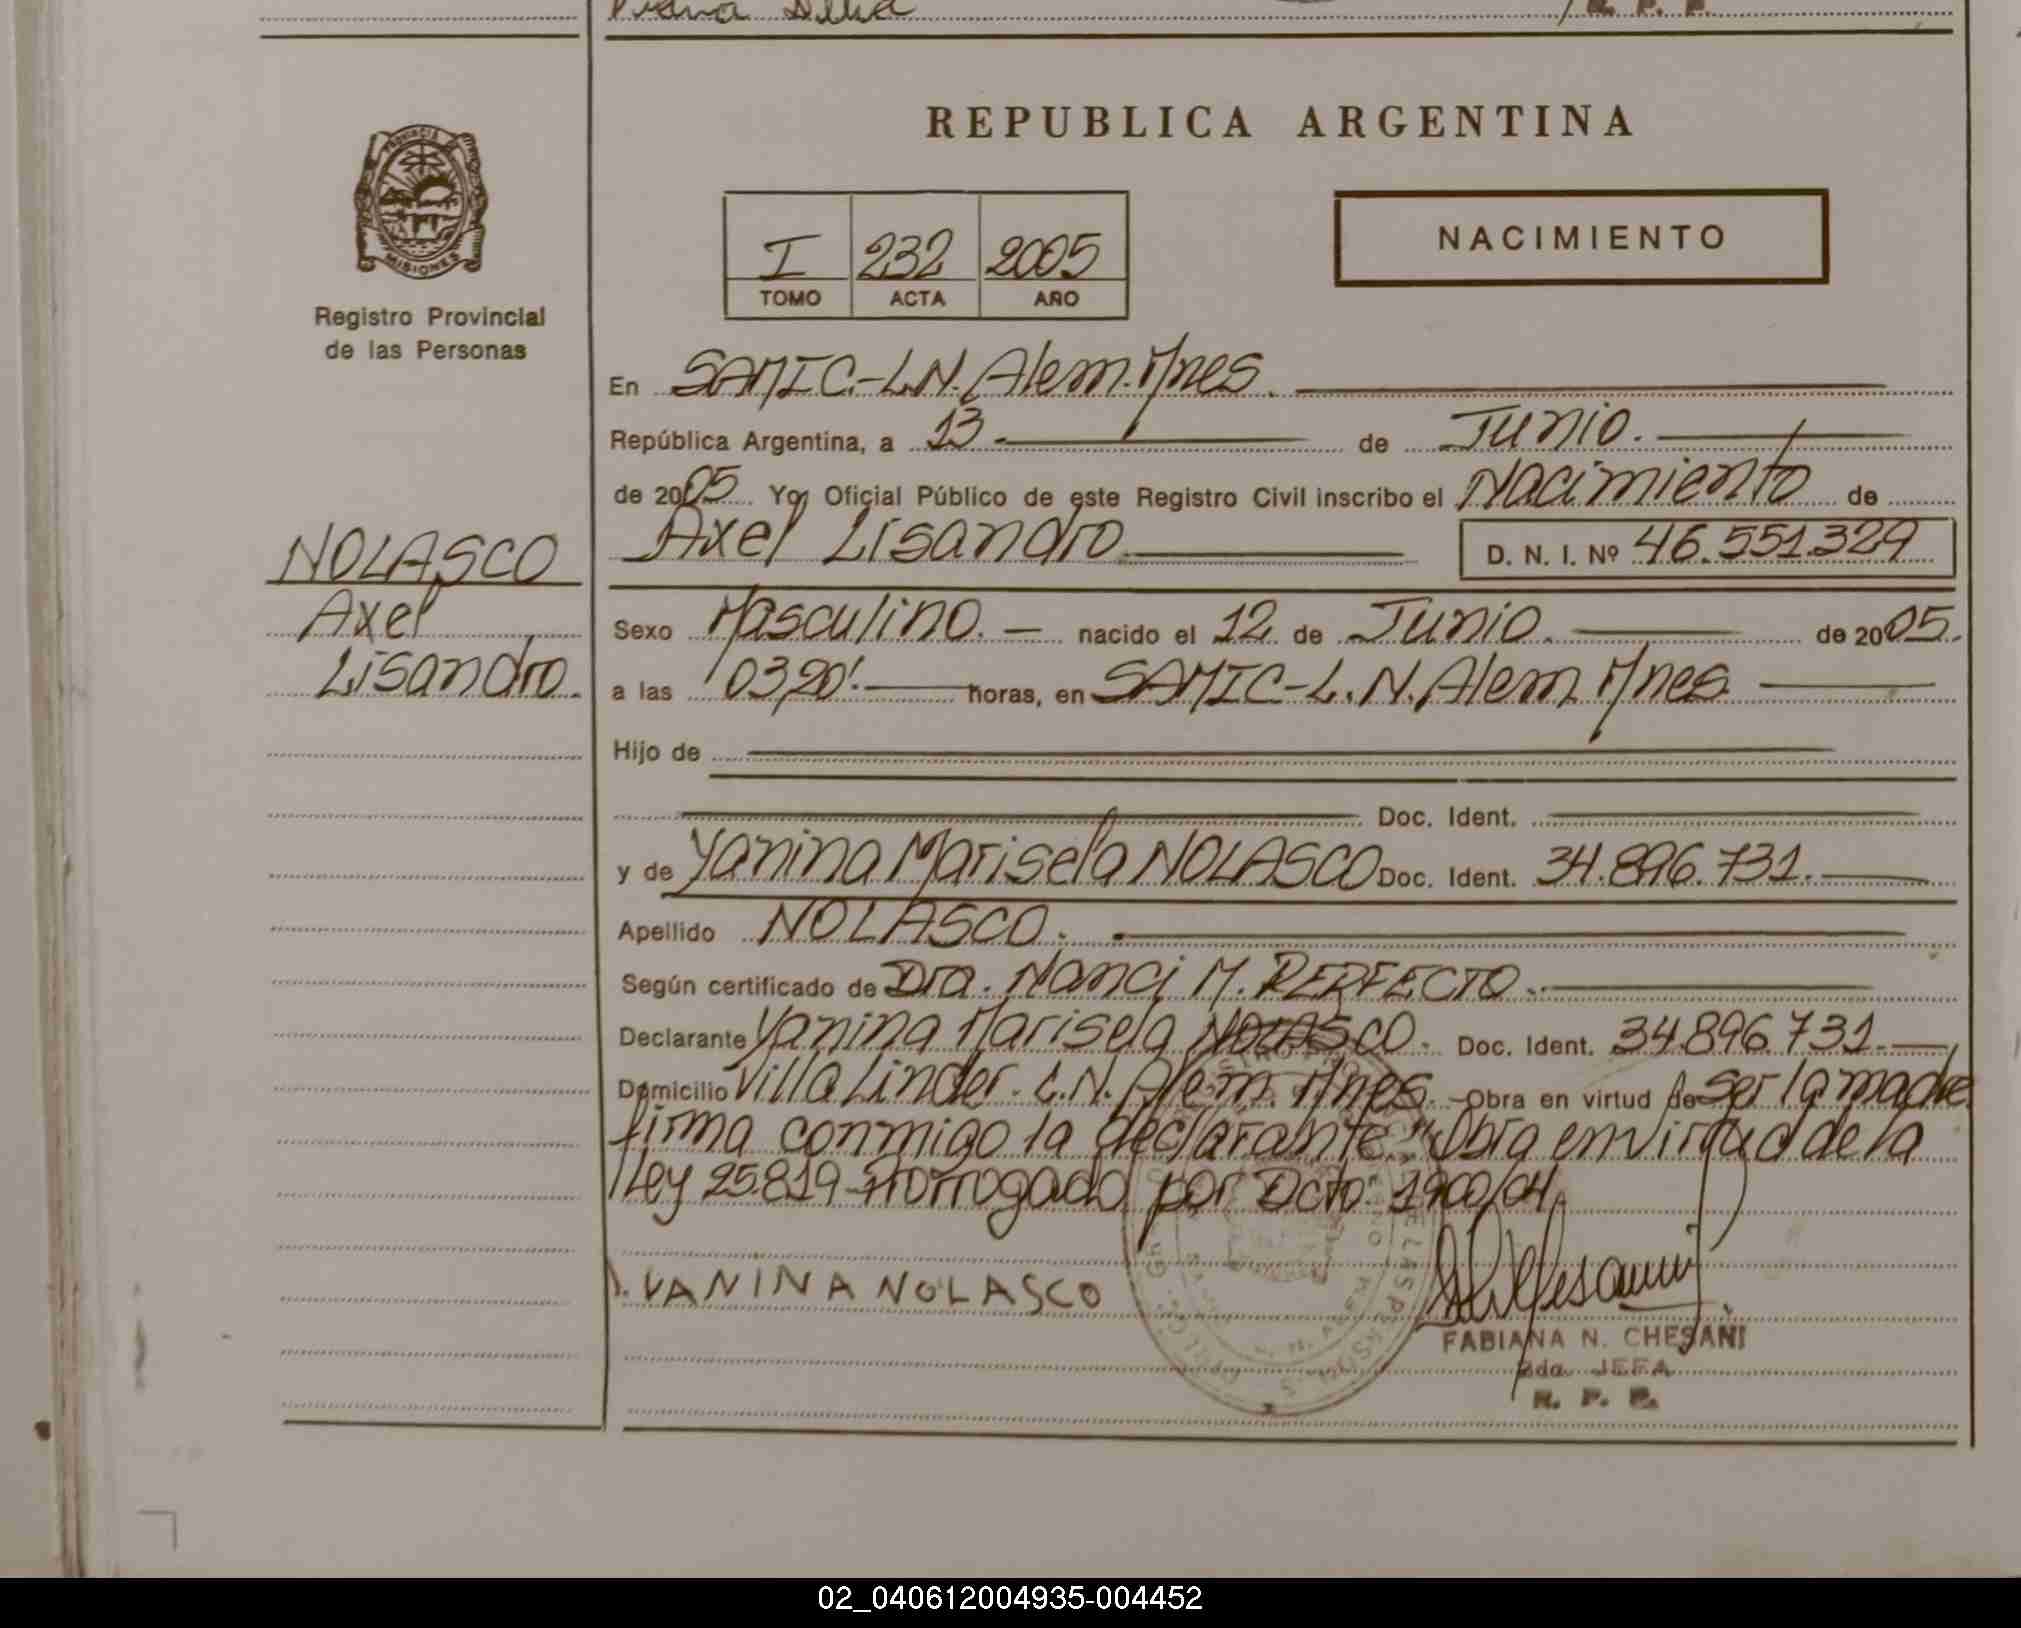 REPUBLICA ARGENTINA
PROVINCIA DE
MISIONES
Registro Provincial
de las Personas
I 232 2005
TOMO ACTA AÑO
NACIMIENTO
En SAMIC.-L.N. Alem. Mnes.
República Argentina, a 13 de Junio.
de 2005 Yo, Oficial Público de este Registro Civil inscribo el Nacimiento de
Axel Lisandro D. N. I. Nº 46.551.329
NOLASCO
Axel
Lisandro.
Sexo Masculino. nacido el 12 de Junio. de 2005.
a las 03,20'. horas, en SAMIC-L.N. Alem Mnes.
Hijo de
Doc. Ident.
y de Yanina Marisela NOLASCO Doc. Ident. 34.896.731.
Apellido NOLASCO.
Según certificado de Dra. Nanci M. PERFECTO.
Declarante Yanina Marisela NOLASCO. Doc. Ident. 34.896.731.
Domicilio Villa Linder. L.N. Alem. Mnes. Obra en virtud de ser la madre
firma conmigo la declarante. "Obra en virtud de la
Ley 25.819 Prorrogado por Dcto. 1900/04.
YANINA NOLASCO
FABIANA N. CHESANI
2da. JEFA
R. P. P.
02_040612004935-004452